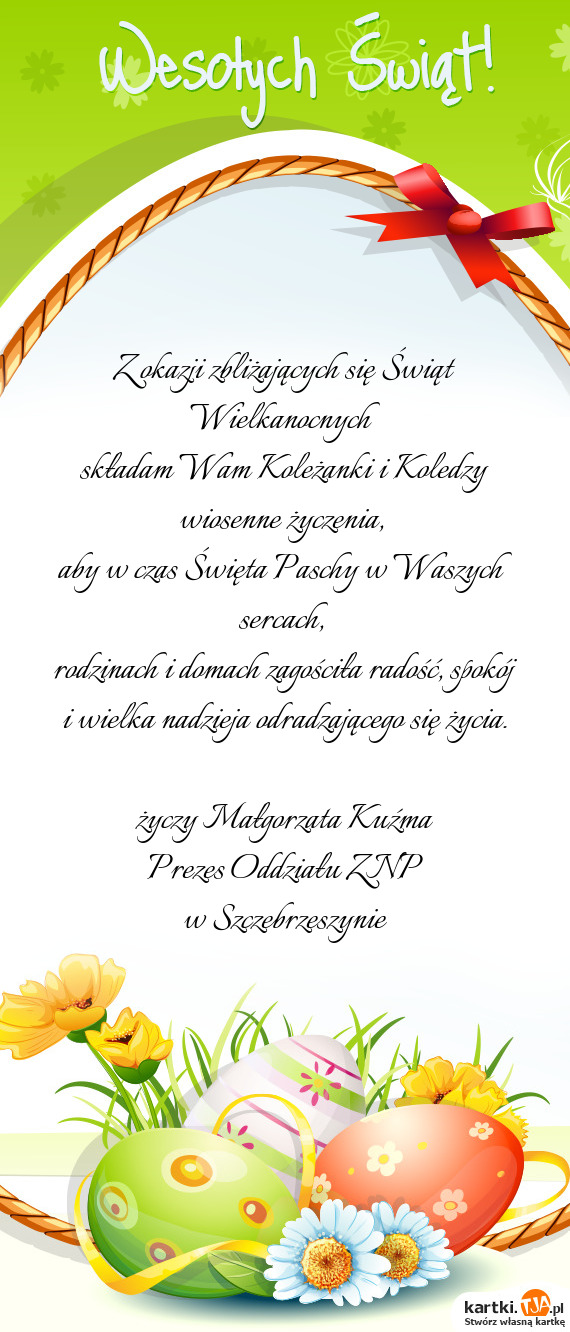 Wesołych Świąt!
Z okazji zbliżających się Świąt
Wielkanocnych
składam Wam Koleżanki i Koledzy
wiosenne życzenia,
aby w czas Święta Paschy w Waszych
sercach,
rodzinach i domach zagościła radość, spokój
i wielka nadzieja odradzającego się życia.
życzy Małgorzata Kuźma
Prezes Oddziału ZNP
w Szczebrzeszynie
kartki.TJA.pl
Stwórz własną kartkę